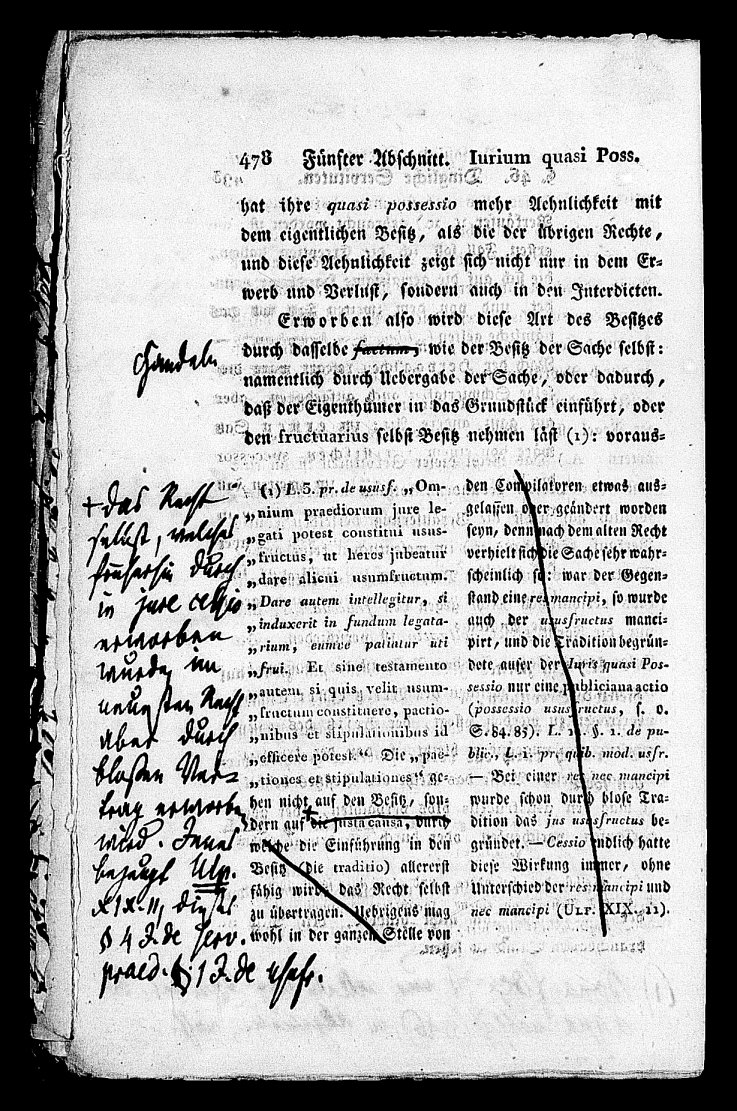 478 Fünfter Abschnitt. Iurium quasi Poss.
hat ihre quasi possessio mehr Aehnlichkeit mit
dem eigentlichen Besitz, als die der übrigen Rechte,
und diese Aehnlichkeit zeigt sich nicht nur in dem Er=
werb und Verlust, sondern auch in den Interdicten.
Erworben also wird diese Art des Besitzes
durch dasselbe factum, wie der Besitz der Sache selbst:
namentlich durch Uebergabe der Sache, oder dadurch,
daß der Eigenthümer in das Grundstück einführt, oder
den fructuarius selbst Besitz nehmen läst (1): voraus-
Handeln
(1) L. 3. pr. de ususf. „Om-
„nium praediorum jure le-
„gati potest constitui usus-
„fructus, ut heres jubeatur
„dare alicui usumfructum.
„Dare autem intellegitur, si
„induxerit in fundum legata-
„rium, eumve patiatur uti
„frui. Et sine testamento
„autem si quis velit usum-
„fructum constituere, pactio-
„nibus et stipulationibus id
„efficere potest.“ Die „pac-
„tiones et stipulationes“ ge-
hen nicht auf den Besitz, son-
dern auf die justa causa, durch
welche die Einführung in den
Besitz (die traditio) allererst
fähig wird, das Recht selbst
zu übertragen. Uebrigens mag
wohl in der ganzen Stelle von
den Compilatoren etwas aus-
gelassen oder geändert worden
seyn, denn nach dem alten Recht
verhielt sich die Sache sehr wahr-
scheinlich so: war der Gegen-
stand eine res mancipi, so wurde
auch der ususfructus manci-
pirt, und die Tradition begrün-
dete außer der Iuris quasi Pos-
sessio nur eine publiciana actio
(possessio ususfructus, s. o.
S. 84. 85). L. 11. §. 1. de pu-
blic., L. 1. pr. quib. mod. usfr.
— Bei einer res nec mancipi
wurde schon durch blose Tra-
dition das jus ususfructus be-
gründet. — Cessio endlich hatte
diese Wirkung immer, ohne
Unterschied der res mancipi und
nec mancipi (ULP. XIX. 11).
+ das Recht
selbst, welches
früherhin durch
in jure cessio
erworben
wurde, im
neuesten Recht
aber durch
bloßen Ver=
trag erworben
wird. Jenes
bezeugt Ulp.
XIX. 11, dieses
§ 4 J. de serv.
praed. § 1 J. de usufr.